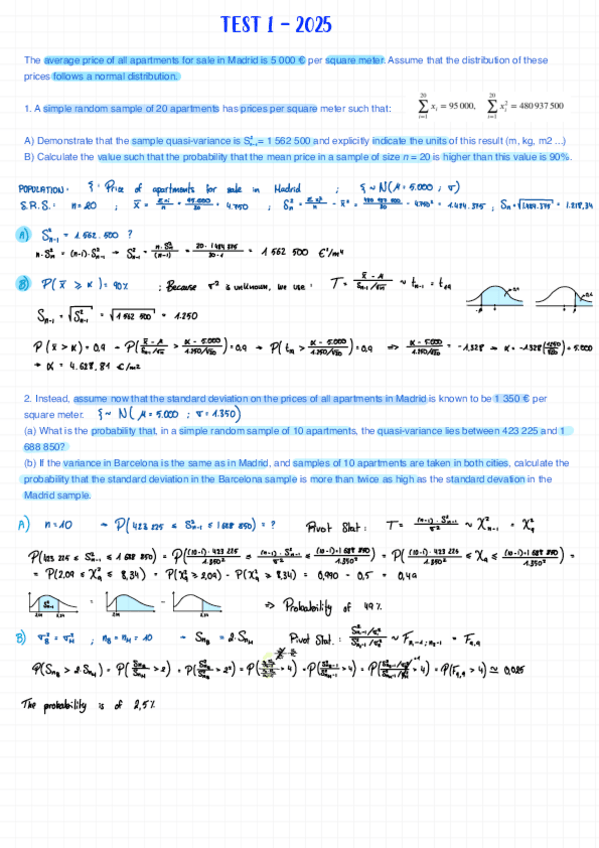 TEST 1 - 2025
The average price of all apartments for sale in Madrid is 5 000 € per square meter. Assume that the distribution of these
prices follows a normal distribution.
1. A simple random sample of 20 apartments has prices per square meter such that: ∑²⁰ᵢ₌₁ xᵢ = 95 000, ∑²⁰ᵢ₌₁ xᵢ² = 480 937 500
A) Demonstrate that the sample quasi-variance is S²ₙ₋₁ = 1 562 500 and explicitly indicate the units of this result (m, kg, m2 ...)
B) Calculate the value such that the probability that the mean price in a sample of size n = 20 is higher than this value is 90%.
POPULATION: ξ: Price of apartments for sale in Madrid ; ξ ~ N(μ = 5.000 ; σ)
S.R.S.: n = 20 ; x̄ = Σxi/n = 95.000/20 = 4.750 ; S²ₙ = Σxi²/n - x̄² = 480 937 500/20 - 4750² = 1.484.375 ; Sₙ = √1.484.375 = 1.218,34
A) S²ₙ₋₁ = 1.562.500 ?
n·S²ₙ = (n-1)·S²ₙ₋₁ → S²ₙ₋₁ = n·S²ₙ/(n-1) = 20·1484375/20-1 = 1 562 500 €²/m⁴
B) P(x̄ ≥ K) = 90% ; Because σ² is unknown, we use: T = x̄-μ/Sₙ₋₁/√n ~ tₙ₋₁ = t₁₉
Sₙ₋₁ = √S²ₙ₋₁ = √1 562 500 = 1.250
P(x̄ > K) = 0,9 → P(x̄-μ/Sₙ₋₁/√n > K-5.000/1.250/√20) = 0,9 → P(tₙ > K-5.000/1.250/√20) = 0,9 ⇒ K-5.000/1.250/√20 = -1,328 → K = -1,328(1250/√20) + 5.000
→ K = 4.628,81 €/m2
2. Instead, assume now that the standard deviation on the prices of all apartments in Madrid is known to be 1 350 € per
square meter. ξ ~ N(μ = 5.000 ; σ = 1.350)
(a) What is the probability that, in a simple random sample of 10 apartments, the quasi-variance lies between 423 225 and 1
688 850?
(b) If the variance in Barcelona is the same as in Madrid, and samples of 10 apartments are taken in both cities, calculate the
probability that the standard deviation in the Barcelona sample is more than twice as high as the standard devation in the
Madrid sample.
A) n = 10 → P(423 225 ≤ S²ₙ₋₁ ≤ 1 688 850) = ? Pivot Stat: T = (n-1)·S²ₙ₋₁/σ² ~ χ²ₙ₋₁ = χ²₉
P(423 225 ≤ S²ₙ₋₁ ≤ 1 688 850) = P((10-1)·423 225/1.350² ≤ (n-1)·S²ₙ₋₁/σ² ≤ (10-1)·1 688 850/1.350²) = P((10-1)·423 225/1.350² ≤ χ²₉ ≤ (10-1)·1 688 850/1.350²) =
= P(2,09 ≤ χ²₉ ≤ 8,34) = P(χ²₉ ≥ 2,09) - P(χ²₉ ≥ 8,34) = 0,990 - 0,5 = 0,49
= - ⇒ Probability of 49%
B) σ²_B = σ²_M ; n_B = n_M = 10 → Sn_B = 2·Sn_M Pivot Stat.: S²ₙ₋₁/σ²/S²ₙ₋₁/σ² ~ Fₙ₋₁;ₙ₋₁ = F₉,₉
P(Sn_B > 2·Sn_M) = P(Sn_B/Sn_M > 2) = P(S²n_B/S²n_M > 2²) = P( > 4) = P(S²ₙ₋₁/S²ₙ₋₁ > 4) = P(S²ₙ₋₁/σ²/S²ₙ₋₁/σ² > 4) = P(F₉,₉ > 4) ≃ 0,025
The probability is of 2,5%